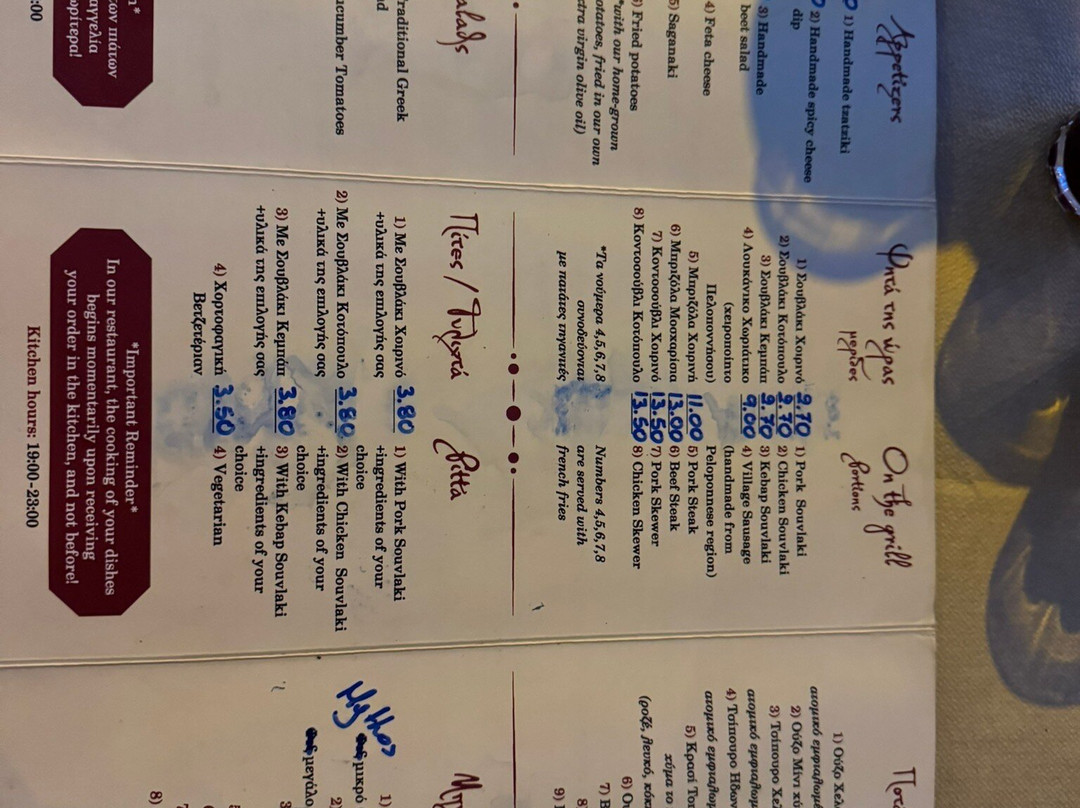 Appetizers
1) Handmade tzatziki
2) Handmade spicy cheese
dip
3) Handmade
beet salad
4) Feta cheese
5) Saganaki
6) Fried potatoes
*with our home-grown
potatoes, fried in our own
extra virgin olive oil)
Salads
Traditional Greek
cucumber Tomatoes
των πάτων
Ψητά της ώρας
μερίδες
1) Σουβλάκι Χοιρινό 9.70
2) Σουβλάκι Κοτόπουλο 9.70
3) Σουβλάκι Κεμπάπ 9.70
4) Λουκάνικο Χωριάτικο 9.00
(χειροποίητο
Πελοποννήσου)
5) Μπριζόλα Χοιρινή 11.00
6) Μπριζόλα Μοσχαρίσια 13.00
7) Κοντοσούβλι Χοιρινό 13.50
8) Κοντοσούβλι Κοτόπουλο 13.50
*Τα νούμερα 4,5,6,7,8
συνοδεύονται
με πατάτες τηγανιτές
On the grill
portions
1) Pork Souvlaki
2) Chicken Souvlaki
3) Kebap Souvlaki
4) Village Sausage
(handmade from
Peloponnese region)
5) Pork Steak
6) Beef Steak
7) Pork Skewer
8) Chicken Skewer
Numbers 4,5,6,7,8
are served with
french fries
Πίτες / Τυλιχτά
1) Με Σουβλάκι Χοιρινό 3.80
+υλικά της επιλογής σας
2) Με Σουβλάκι Κοτόπουλο 3.80
+υλικά της επιλογής σας
3) Με Σουβλάκι Κεμπάπ 3.80
+υλικά της επιλογής σας
4) Χορτοφαγική 3.50
Βετζετέριαν
Pitta
1) With Pork Souvlaki
+ingredients of your
choice
2) With Chicken Souvlaki
+ingredients of your
choice
3) With Kebap Souvlaki
+ingredients of your
choice
4) Vegetarian
*Important Reminder*
In our restaurant, the cooking of your dishes
begins momentarily upon receiving
your order in the kitchen, and not before!
Kitchen hours: 19:00-23:00
1) Ούζο
ατομικό
2) Ούζο Μίνι
3) Τσίπουρο
ατομικό
4) Τσίπουρο
ατομικό
5) Κρασί
χύμα το
(ροζέ, λευκό,
6)
7)
8
9)
Mythos
1)
μικρό
2)
μεγάλο
8)